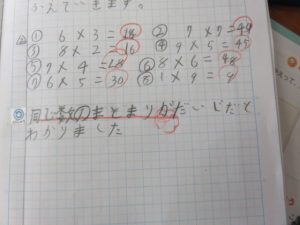 ふえていきます。
① 6 × 3 = 18 ② 7 × 7 = 49
③ 8 × 2 = 16 ④ 9 × 5 = 45
⑤ 7 × 4 = 28 ⑥ 8 × 6 = 48
⑦ 6 × 5 = 30 ⑧ 1 × 9 = 9
同じ数のまとまりがだいじだと
わかりました